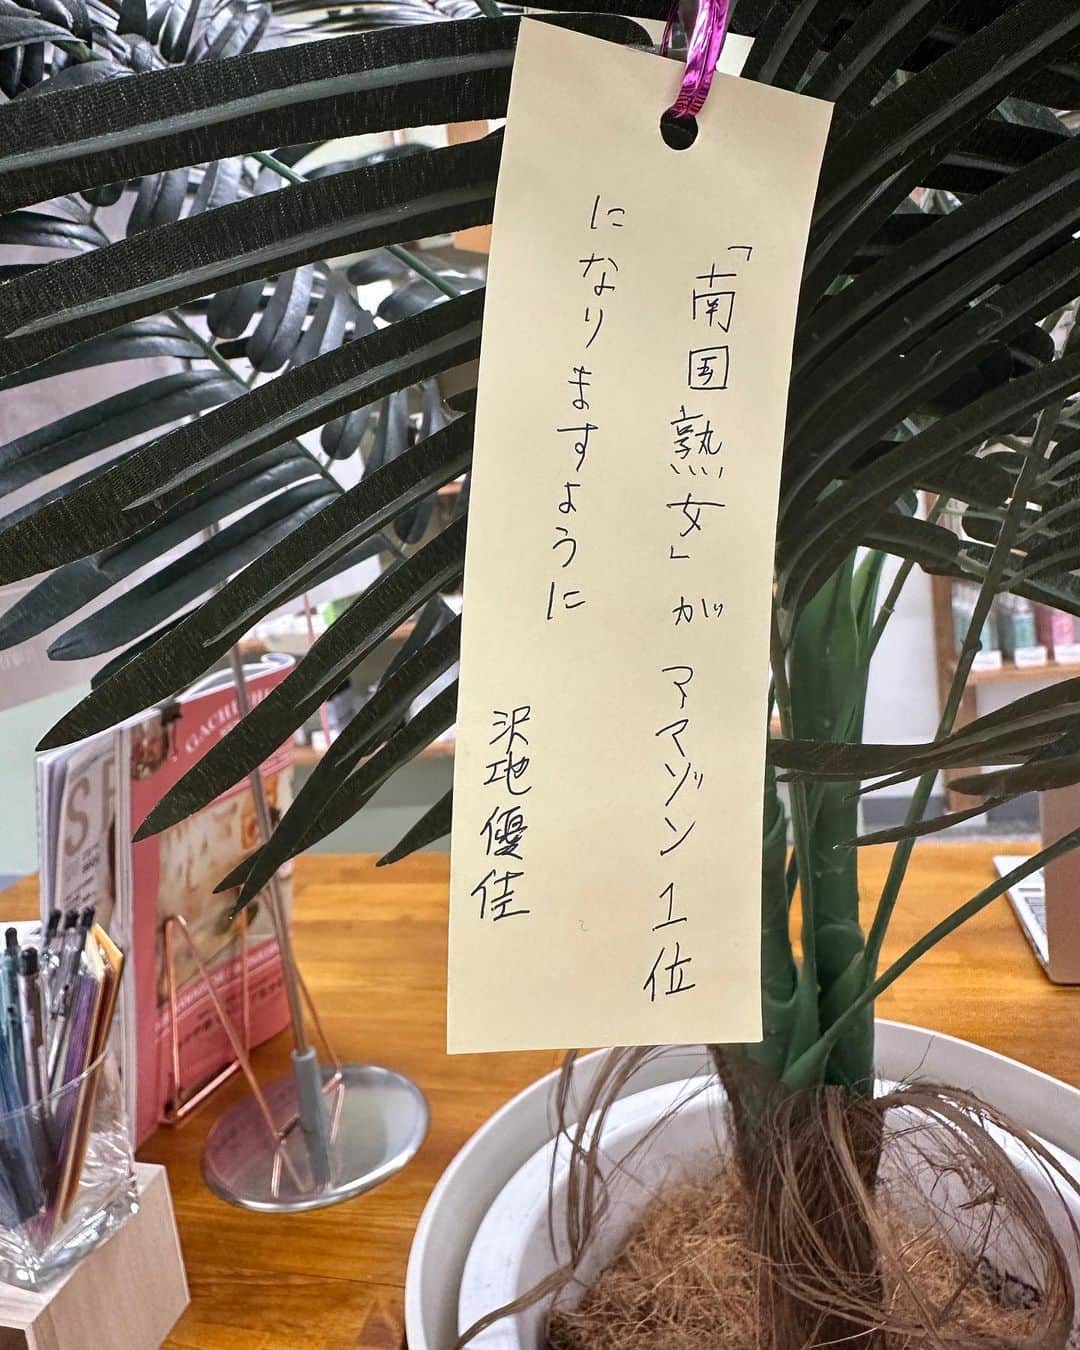 「南国熟女」がアマゾン1位
になりますように
沢地優佳
GACHI